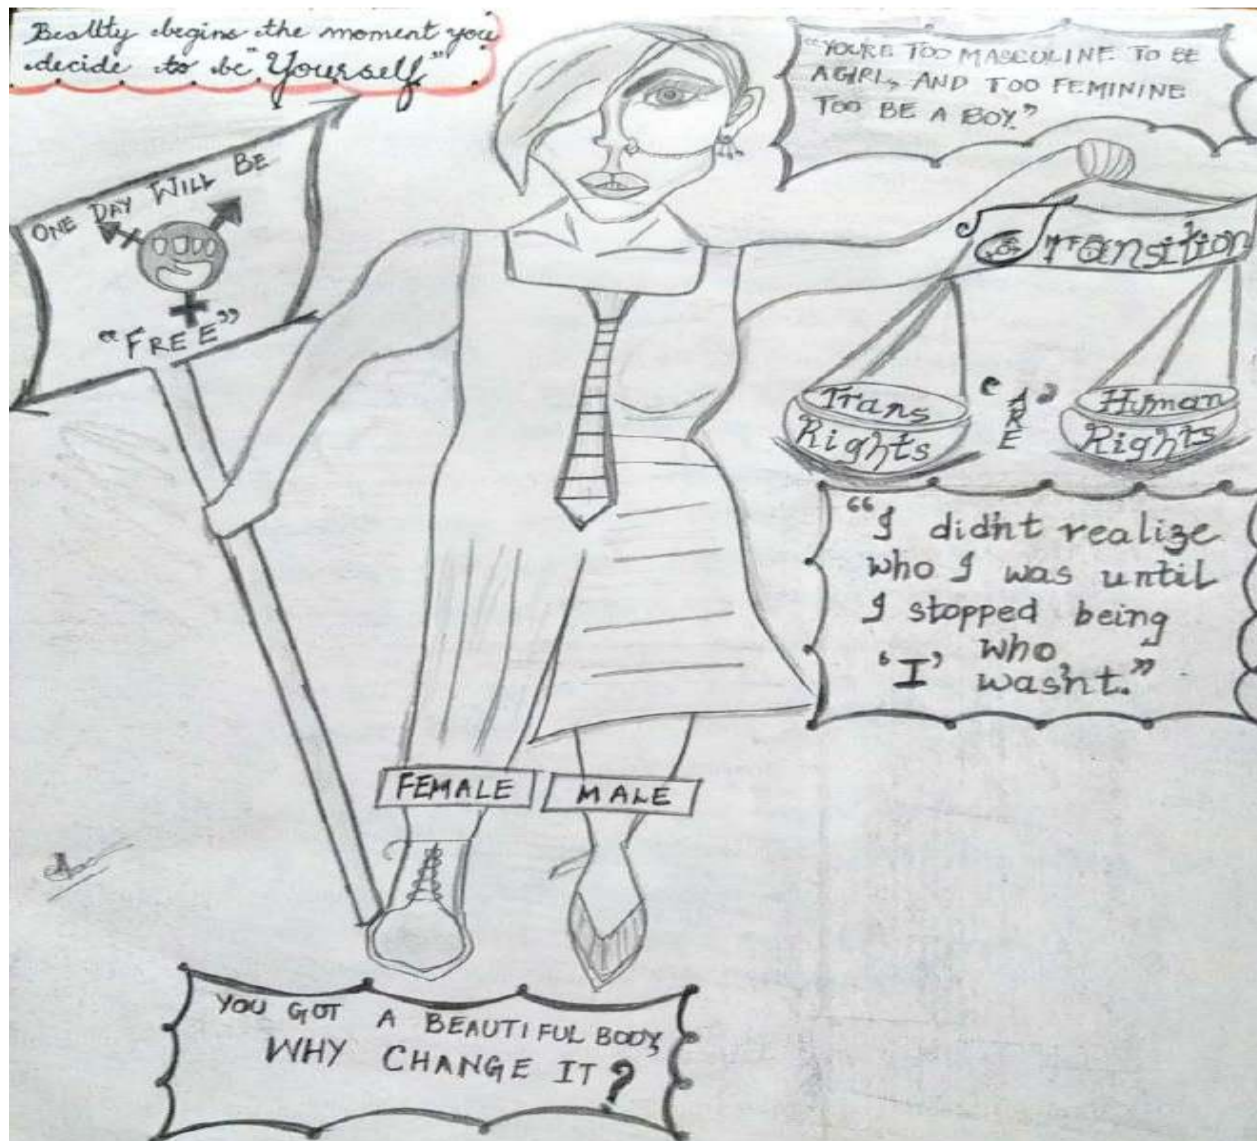 Beauty begins the moment you
decide to be "Yourself"
"YOU'RE TOO MASCULINE TO BE
A GIRL, AND TOO FEMININE
TOO BE A BOY."
ONE DAY WILL BE
"FREE"
Transition
Trans
Rights
"ARE"
Human
Rights
"I didn't realize
who I was until
I stopped being
who
'I' wasn't."
FEMALE
MALE
YOU GOT A BEAUTIFUL BODY,
WHY CHANGE IT?